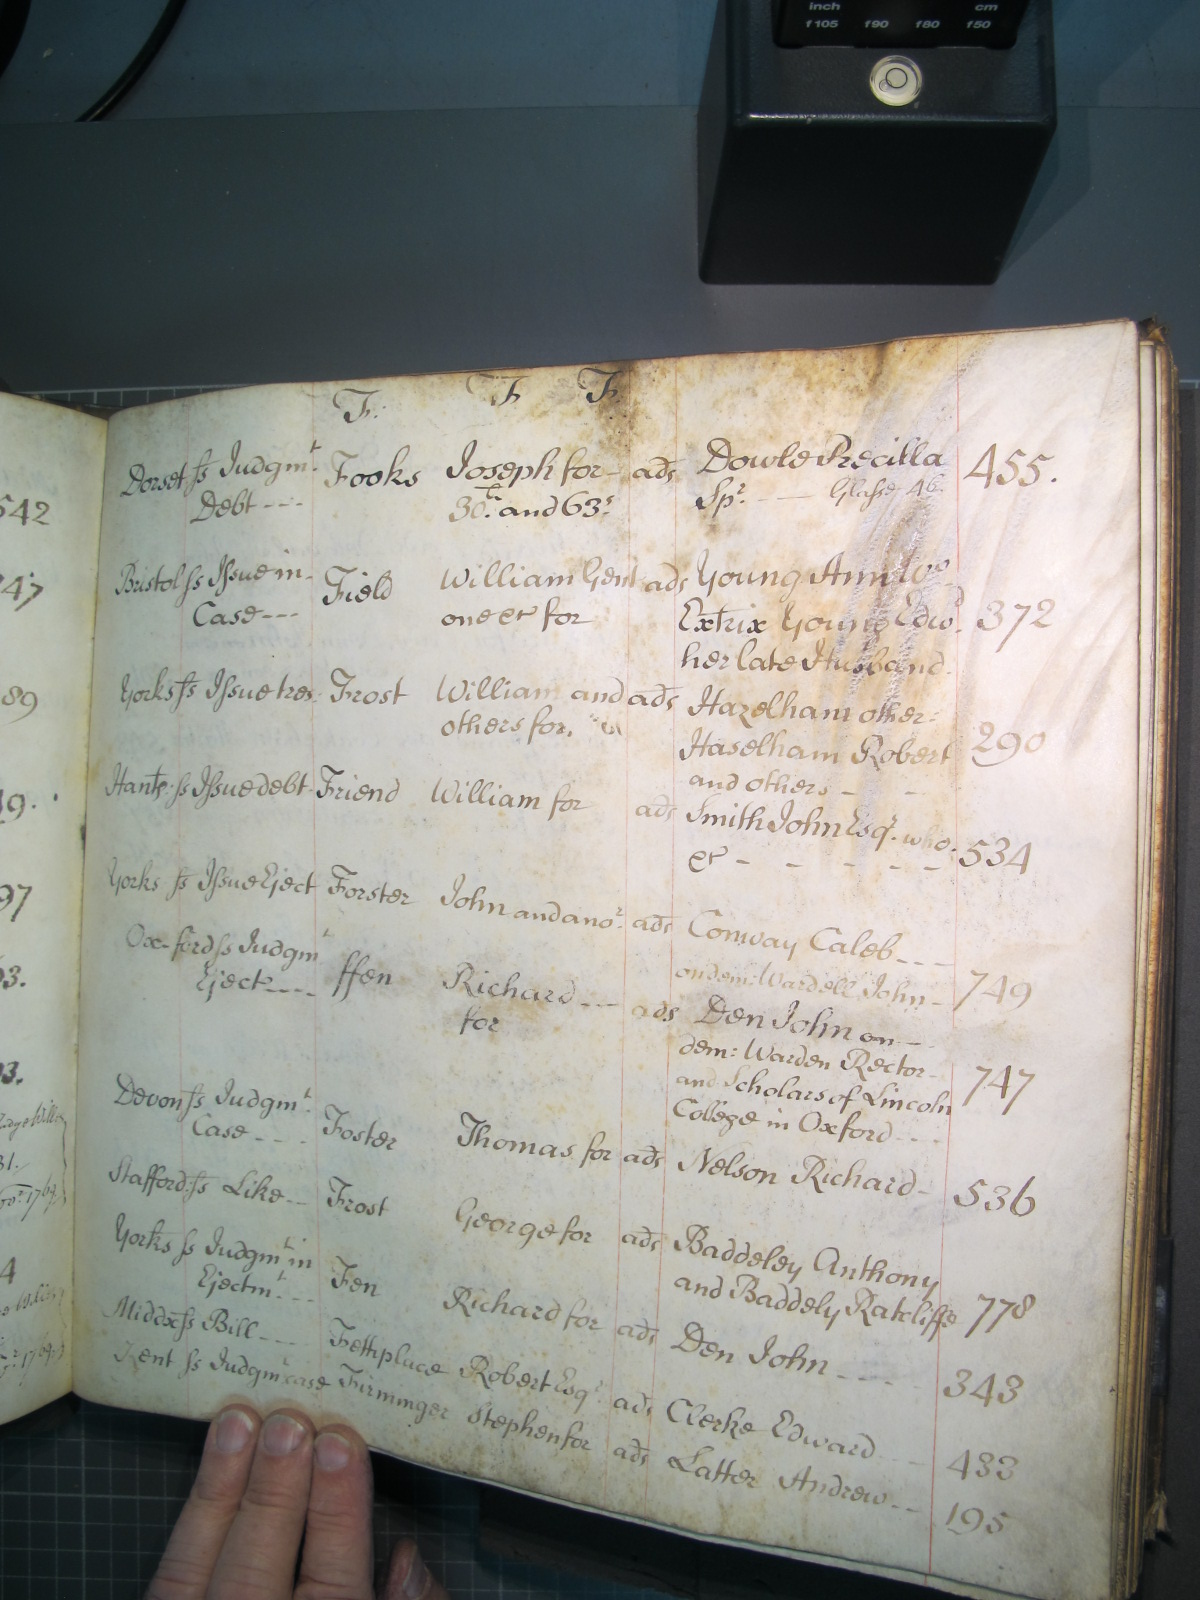 inch cm
f105 f90 f80 f50
F. F F
Dorset ss Judgmt. Fooks Joseph for ads Dowle Precilla 455.
Debt --- 30:£ and 63s Spr. -- Glasse 46.
Bristol ss Issue in Field William Gent ads Young Ann Wo
Case --- one &c for Extrix Young Edwd. 372
her late Husband
Yorks ss Issue tres. Frost William and ads Hazelham other:
others for. Haselham Robert 290
and others -
Hants ss Issue debt Friend William for ads Smith John Esqr. who. 534
&c - - - - -
Yorks ss Issue Eject Forster John and anor. ads Conway Caleb ---
on dem: Wardell John - 749
Oxford ss Judgmt ffen Richard --- ads Den John on --
Eject ---- for dem: Warden Rector - 747
and Scholars of Lincoln
College in Oxford ---
Devon ss Judgmt. Foster Thomas for ads Nelson Richard - 536
Case ---
Stafford ss Like -- Frost George for ads Baddeley Anthony
and Baddely Ratcliffe 778
Yorks ss Judgmt in Fen Richard for ads Den John ---- 343
Ejectmt. ---
Middx ss Bill --- Fettiplace Robert Esqr ads Clerke Edward --- 433
Kent ss Judgmt case Firminger Stephen for ads Latter Andrew -- 195
542
47
89
9.
97
3.
3.
31.
1769
4
1769